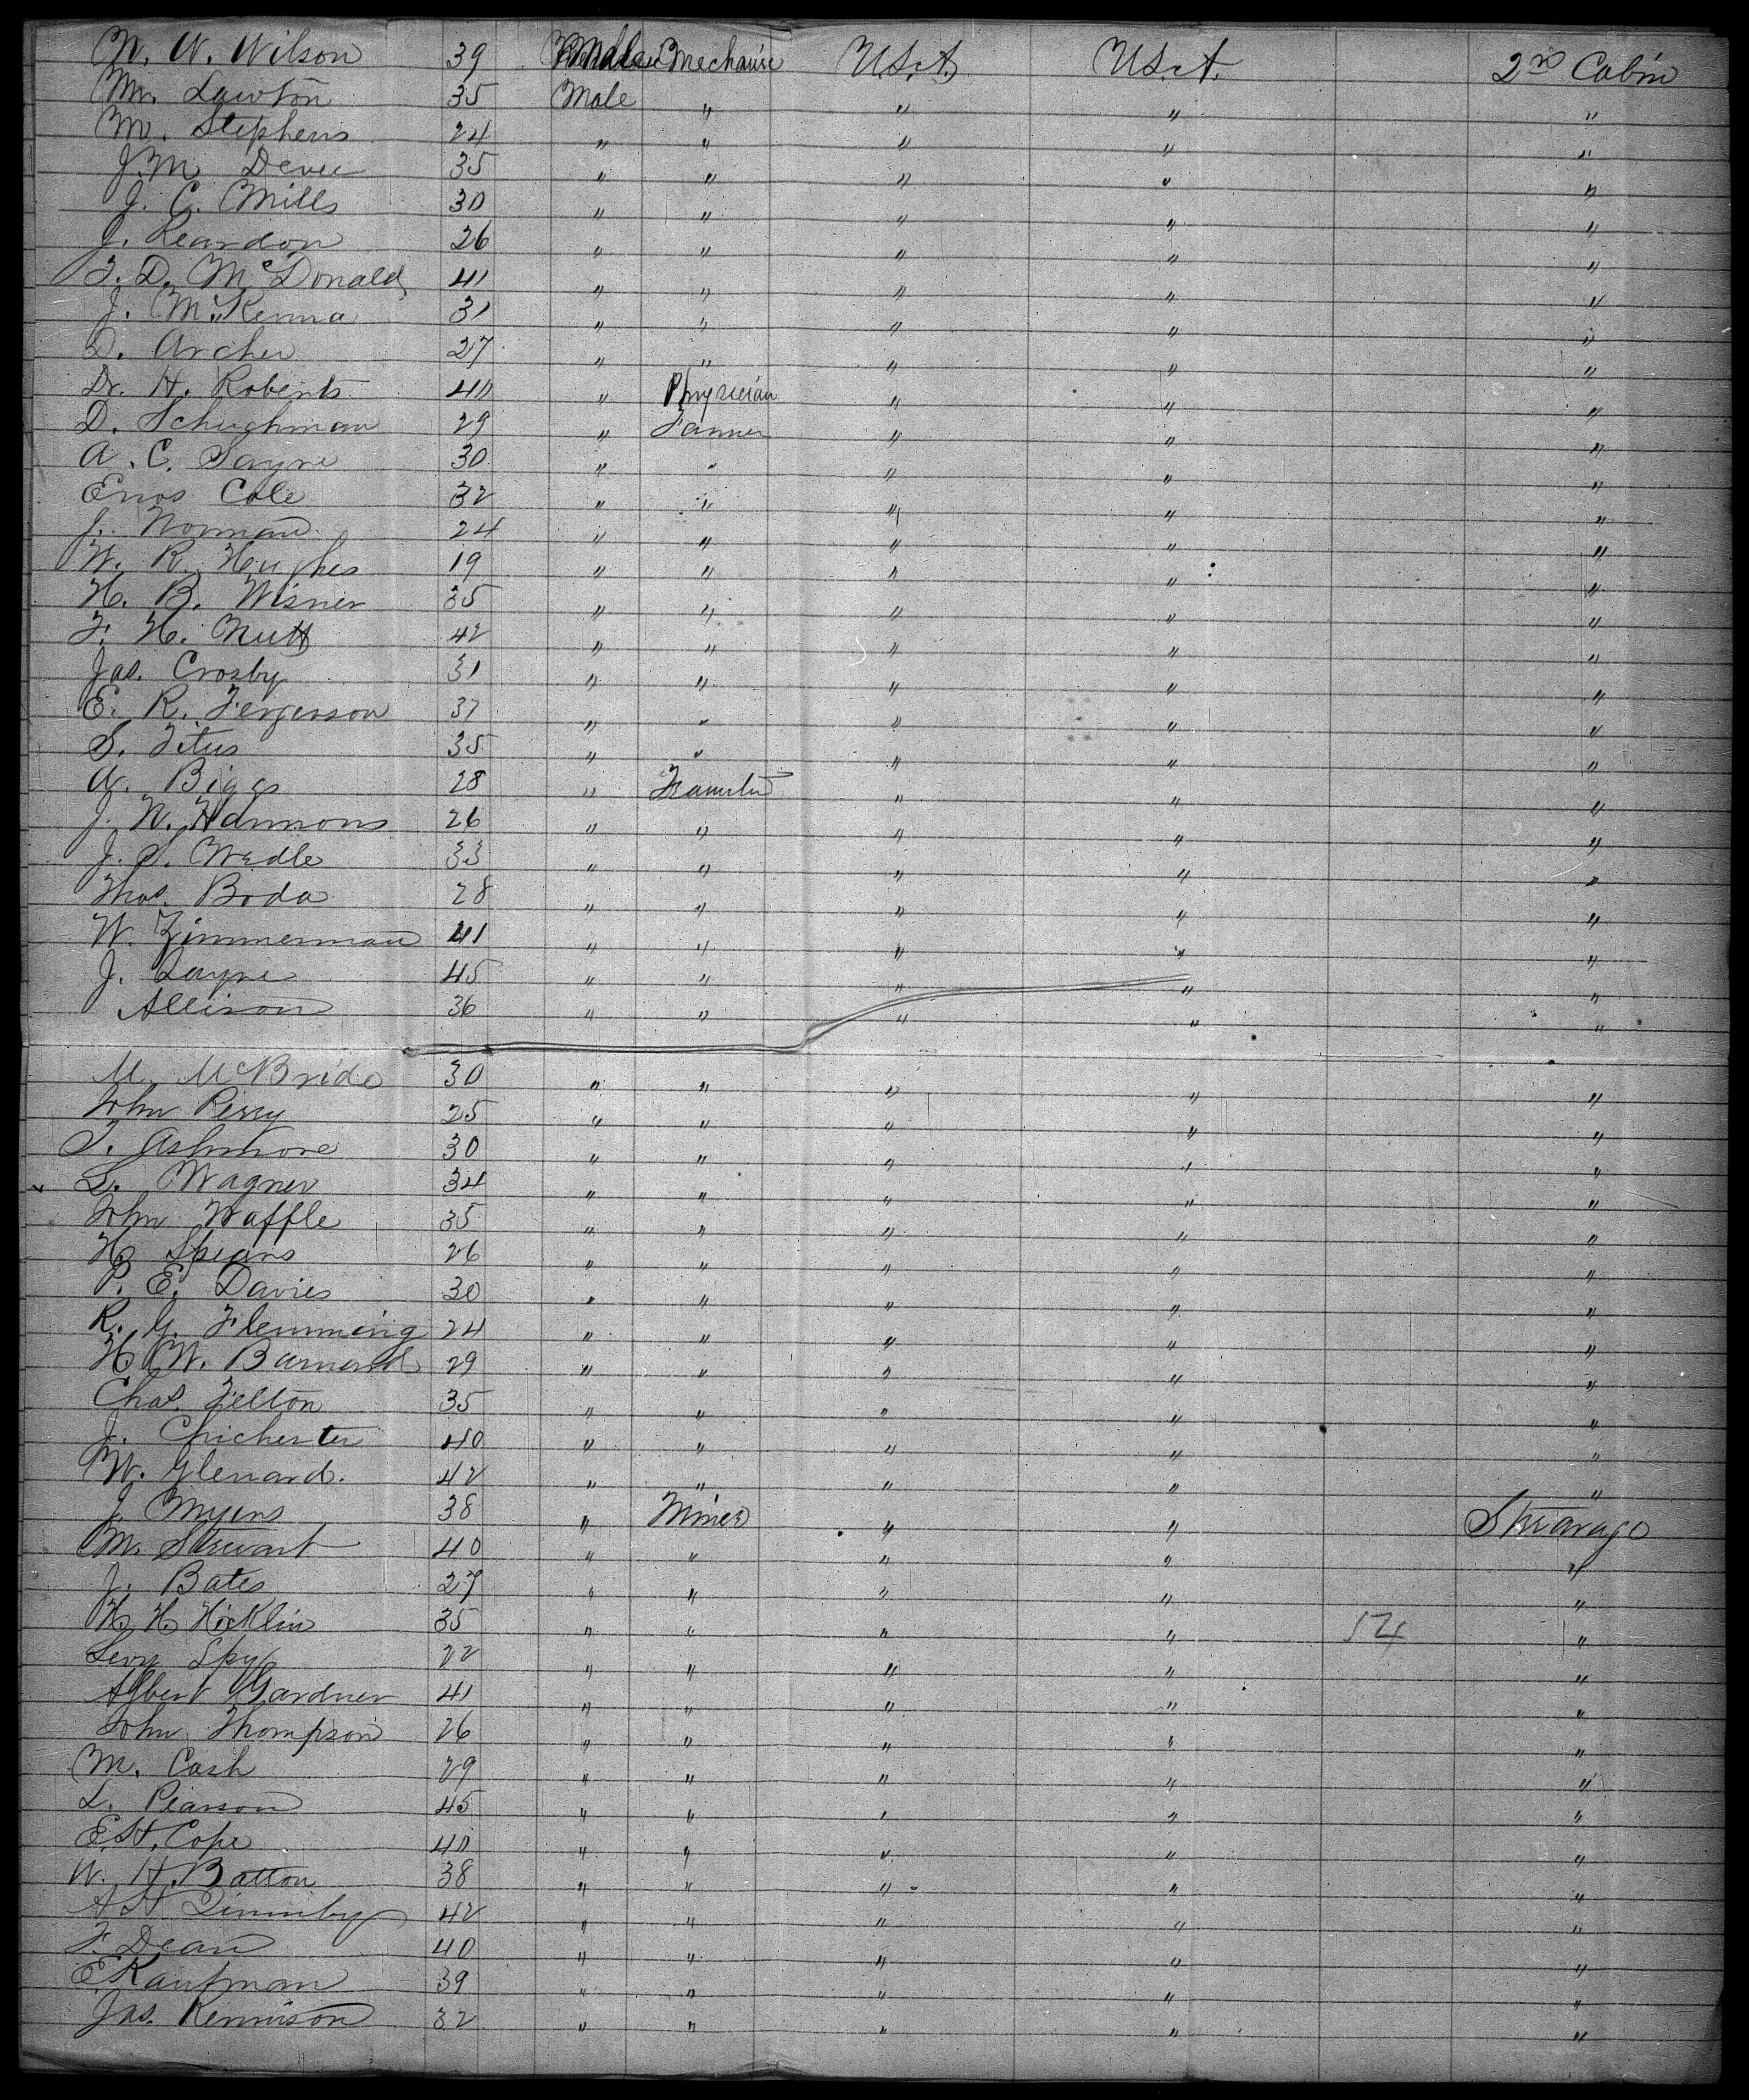 W. W. Wilson 39 Male Mechanic U.S.A. U.S.A. 2nd Cabin
Mr. Lawton 35 Male " " " "
M. Stephens 24 " " " " "
J. M. 35 " " " " "
J. C. Mills 30 " " " " "
J. Reardon 26 " " " " "
F. D. McDonald 41 " " " " "
J. McKenna 31 " " " " "
D. Archer 27 " " " " "
Dr. H. Roberts 40 " Physician " " "
D. Schughman 29 " Farmer " " "
A. C. Sayre 30 " " " " "
Enos Cole 32 " " " " "
J. Norman 24 " " " " "
W. R. Hughes 19 " " " " "
H. B. Wisner 35 " " " " "
F. H. Nutt 42 " " " " "
Jas. Crosby 31 " " " " "
E. R. Fergerson 37 " " " " "
S. Titus 35 " " " " "
W. Biggs 28 " " " "
J. W. Hammons 26 " " " " "
J. S. Wedle 33 " " " " "
Thos. Boda 28 " " " " "
W. Zimmerman 41 " " " " "
J. Layne 45 " " " " "
Allison 36 " " " " "
M. McBride 30 " " " " "
John Perry 25 " " " " "
T. Ashmore 30 " " " " "
L. Wagner 34 " " " " "
John Waffle 35 " " " " "
H. Spears 26 " " " " "
P. E. Davies 30 " " " " "
R. G. Flemming 24 " " " " "
H. W. Barnard 29 " " " " "
Chas. Felton 35 " " " " "
J. Chichester 40 " " " " "
W. Glenard. 42 " " " " "
J. Myers 38 " Miner " " Stearage
M. Stewart 40 " " " " "
J. Bates 27 " " " " "
H. H. Hicklin 35 " " " " 174 "
Levy Spy 22 " " " " "
Albert Gardner 41 " " " " "
John Thompson 26 " " " " "
M. Cash 29 " " " " "
L. Pearson 45 " " " " "
E. H. Cope 40 " " " " "
W. H. Batton 38 " " " " "
A H Quimby 42 " " " " "
F. Dean 40 " " " " "
E Kaufman 39 " " " " "
Jas. Kennison 32 " " " " "